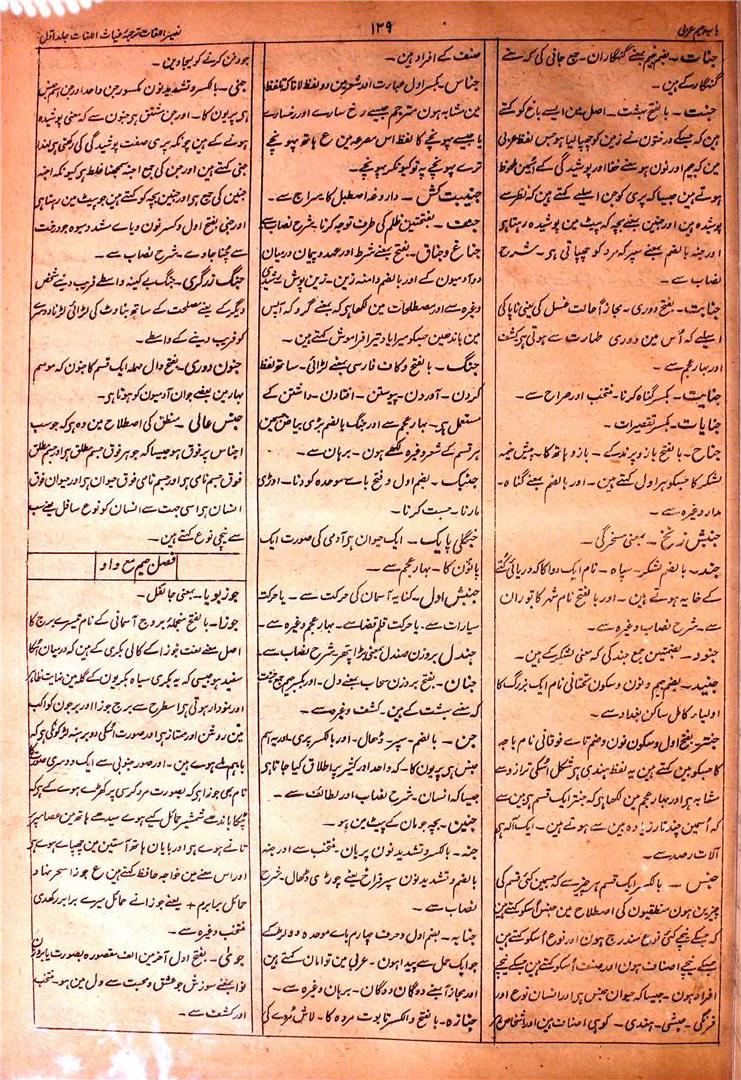 باب جیم عربی ۱۲۹ نصیر اللغات ترجمۂ غیاث اللغات جلد اول
جنات۔ بضم جیم بمعنے گنہگاران۔ جمع جانی کی کہ بمعنے
گنہگار کے ہین۔
جنت۔ بالفتح بہشت۔ اصل مین ایسے باغ کو کہتے
ہین کہ جسکے درختون نے زمین کو چھپا لیا ہو جس لفظ عربی
مین کہ جیم اور نون ہو معنے خفا اور پوشیدگی کے اسمین ملحوظ
ہوتے ہین جیسا کہ پری کو جن اسلیے کہتے ہین کہ نظر سے
پوشیدہ ہین اور جنین بمعنے بچہ کہ پیٹ مین پوشیدہ رہتا ہی
اور جنہ بالضم بمعنے سپر کہ مرد کو چھپاتی ہی۔ شرح
نصاب سے۔
جنابت۔ بفتح دوری۔ مجازاً حالت غسل کی یعنی ناپاکی
اسلیے کہ اُس مین دوری طہارت سے ہوتی ہی کشف
اور بہار عجم سے۔
جنایت۔ بکسر گناہ کرنا۔ منتخب اور صراح سے۔
جنایات۔ بکسر تقصیرات۔
جناح۔ بالفتح بازو پرند کے۔ بازو ہاتھ کا۔ پیش خیمہ
لشکر کا جسکو ہراول کہتے ہین۔ اور بالضم بمعنے گناہ۔
مدار وغیرہ سے۔
جنبش زنخ۔ بمعنی مسخرگی۔
جند۔ بالضم لشکر۔ سپاہ۔ نام ایک دوا کا کہ دریائی کُتے
کے خایہ ہوتے ہین۔ اور بالفتح نام شہر کا توران
سے۔ شرح نصاب وغیرہ سے۔
جنود۔ بضمتین جمع جند کی کہ معنی لشکر کے ہین۔
جنید۔ بضم جیم و نون و سکون تحتانی نام ایک بزرگ کا
اولیاء کامل ساکن بغداد سے۔
جنتر۔ بفتح اول و سکون نون و ضم تاے فوقانی نام باجہ
کا جسکو بین کہتے ہین یہ لفظ ہندی ہی شکل اُسکی ترازو سے
مشابہ ہی اور بہار عجم مین لکھا ہی کہ جنتر ایک قسم بین سے
کہ اُسمین چند تار زیادہ بین سے ہوتے ہین۔ ایک آلہ ہی
آلات رصد سے۔
جنس۔ بالکسر ایک قسم ہر چیز سے کہ جسمین کئی قسم کی
چیزین ہون منطقیون کی اصطلاح مین جنس اُسکو کہتے ہین
کہ جسکے نیچے کئی نوع مندرج ہون اور نوع اُسکو کہتے ہین
جسکے نیچے اصناف ہون اور صنف اُسکو کہتے ہین جسکے نیچے
افراد ہون۔ جیسا کہ حیوان جنس ہی اور انسان نوع اور
فرنگی۔ حبشی۔ ہندی۔ کوہی اصناف ہین اور اشخاص ہر
صنف کے افراد ہین۔
جناس۔ بکسر اول عبارت اور شعر مین دو لفظ لانا کہ تلفظ
مین مشابہ ہون مترجم جیسے رخ سارے اور رخسارے
یا جیسے پہونچے کا لفظ اس مصرعہ مین ع ہاتھ پہونچے
ترے پہونچے پہ تو کیونکر پہونچے۔
جنیبت کش۔ داروغہ اصطبل کا سراج سے۔
جنف۔ بفتحتین ظلم کی طرف توجہ کرنا۔ شرح نصاب سے
جناغ و جناق۔ بفتح بمعنے شرط اور عہد و پیمان درمیان
دو آدمیون کے اور بالضم دامنہ زین۔ زین پوش رشیدی
وغیرہ سے اور مصطلحات مین لکھا ہی کہ بمعنے گرو کہ آپس
مین باندھین جسکو میرا یاد تیرا فراموش کہتے ہین۔
جنگ۔ بالفتح و کاف فارسی بمعنے لڑائی۔ ساتھ لفظ
کردن۔ آوردن۔ پیوستن۔ افتادن۔ داشتن کے
مستعمل ہی۔ بہار عجم سے اور جنگ بالضم بڑی بیاض جسمین
ہر قسم کے شعر وغیرہ لکھے ہون۔ برہان سے۔
جنبک۔ بضم اول و فتح باے موحدہ کودنا۔ اوڑی
مارنا۔ جست کرنا۔
جنگلی پایک۔ ایک حیوان ہی آدمی کی صورت ایک
پانؤن کا۔ بہار عجم سے۔
جنبش اول۔ کنایہ آسمان کی حرکت سے۔ یا حرکت
سیارات سے۔ یا حرکت قلم قضا سے۔ بہار عجم وغیرہ سے۔
جندل۔ بروزن صندل بمعنی بڑا پتھر۔ شرح نصاب سے۔
جنان۔ بفتح بروزن سحاب بمعنے دل۔ اور بکسر جیم جمع جنت
کہ بمعنے بہشت کے ہین۔ کشف وغیرہ سے۔
جن۔ بالضم۔ سپر۔ ڈھال۔ اور بالکسر پری۔ اور یہ اسم
جنس ہی پریون کا۔ کہ واحد اور کثیر پر اطلاق کیا جاتا ہی
جیسا کہ انسان۔ شرح نصاب اور لطائف سے۔
جنین۔ بچہ جو مان کے پیٹ مین ہو۔
جنہ۔ بالکسر و تشدید نون پریان۔ منتخب سے اور جنہ
بالضم و تشدید نون سپر فراخ بمعنے چوڑی ڈھال۔ شرح
نصاب سے۔
جنابہ۔ بضم اول و حرف چہارم باے موحدہ دو لڑکے
جو ایک حمل سے پیدا ہون۔ عربی مین توامان کہتے ہین
اور مجازاً بمعنے دوگان دوگان۔ برہان وغیرہ سے۔
جنازہ۔ بالفتح و الکسر تابوت مردہ کا۔ لاش مُردے کی
جو دفن کرنے کو لیجاوین۔
جنی۔ بالکسر و تشدید نون مکسور جن واحد اور جن اسم جنس
ہی پریون کا۔ اور جن مشتق ہی جنون سے کہ معنی پوشیدہ
ہونے کے ہین چونکہ پری صفت پوشیدگی کی رکھتی ہی لہذا
جنی کہتے ہین اور جن کی جمع اجنہ سمجھنا غلط ہی کیونکہ اجنہ
جنین کی جمع ہی اور جنین بچہ کو کہتے ہین جو پیٹ مین رہتا ہی
اور جنی بفتح اول و کسر نون و یاے مشدد میوہ جو درخت
سے چُنا جاوے۔ شرح نصاب سے۔
جنگ زرگری۔ جنگ بے کینہ واسطے فریب دینے شخص
دیگر کے یعنے مصلحت کے ساتھ بناوٹ کی لڑائی لڑنا دوسرے
کو فریب دینے کے واسطے۔
جنون دوری۔ بفتح دال مہملہ ایک قسم کا جنون کہ موسم
بہار مین بعضے جوان آدمیون کو ہوتا ہی۔
جنس عالی۔ منطق کی اصطلاح مین وہ ہی کہ جو سب
اجناس پر فوق ہو جیسا کہ جوہر فوق جسم مطلق ہی اور جسم مطلق
فوق جسم نامی ہی اور جسم نامی فوق حیوان ہی اور حیوان فوق
انسان ہی اسی جہت سے انسان کو نوع سافل یعنے سب
سے نیچی نوع کہتے ہین۔
فصل جیم مع واو
جوزبویا۔ بمعنی جائفل۔
جوزا۔ بالفتح منجملہ بروج آسمانی کے نام تیسرے برج کا
اصل معنے لغت جوزا کے کالی بکری کے ہین کہ درمیان اُسکا
سفید ہو جیسی کہ یہ بکری سیاہ بکریون کے گلہ مین نہایت ظاہر
اور نمودار ہوتی ہی اسی طرح سے برج جوزا اور برجون کو اکب
مین روشن اور ممتاز ہی اور صورت اُسکی دو برہنہ لڑکونکی ہی کہ
باہم ملے ہوے ہین۔ اور صور جنوبی سے ایک دوسری صورت کا
نام بھی جوزا ہی کہ بصورت مرد کرسی پر کھڑے ہوے کے ہی کہ
پٹکا باندھے شمشیر حمائل کیے ہوے سیدھے ہاتھ مین عصا سر پر
تانے ہوے ہی اور بایان ہاتھ آستین مین چھپاے ہوے ہی
اور اس معنے مین خواجہ حافظ کہتے ہین ع جوزا سحر نہاد
حمائل برابرم + یعنے جوزا نے حمائل میرے برابر رکھدی
منتخب وغیرہ سے۔
جویٰ۔ بفتح اول آخر مین الف مقصورہ بصورت یا بروزن
نوا بمعنے سوزش جو عشق و محبت سے دل مین ہو۔ منتخب
اور کشف سے۔